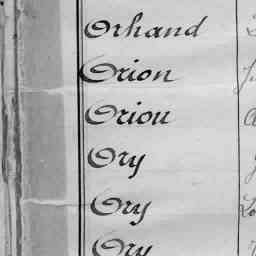 Orhand
Orion
Oriou
Ory
Ory
Ory